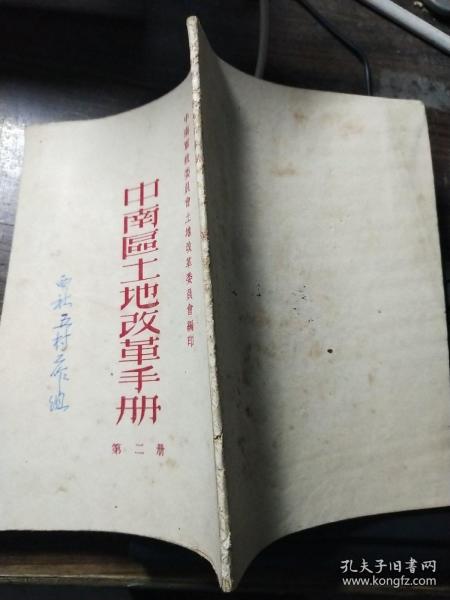 中南軍政委員會土地改革委員會編印
中南區土地改革手册
第二册
西社五村
孔夫子旧书网
www.kongfz.com